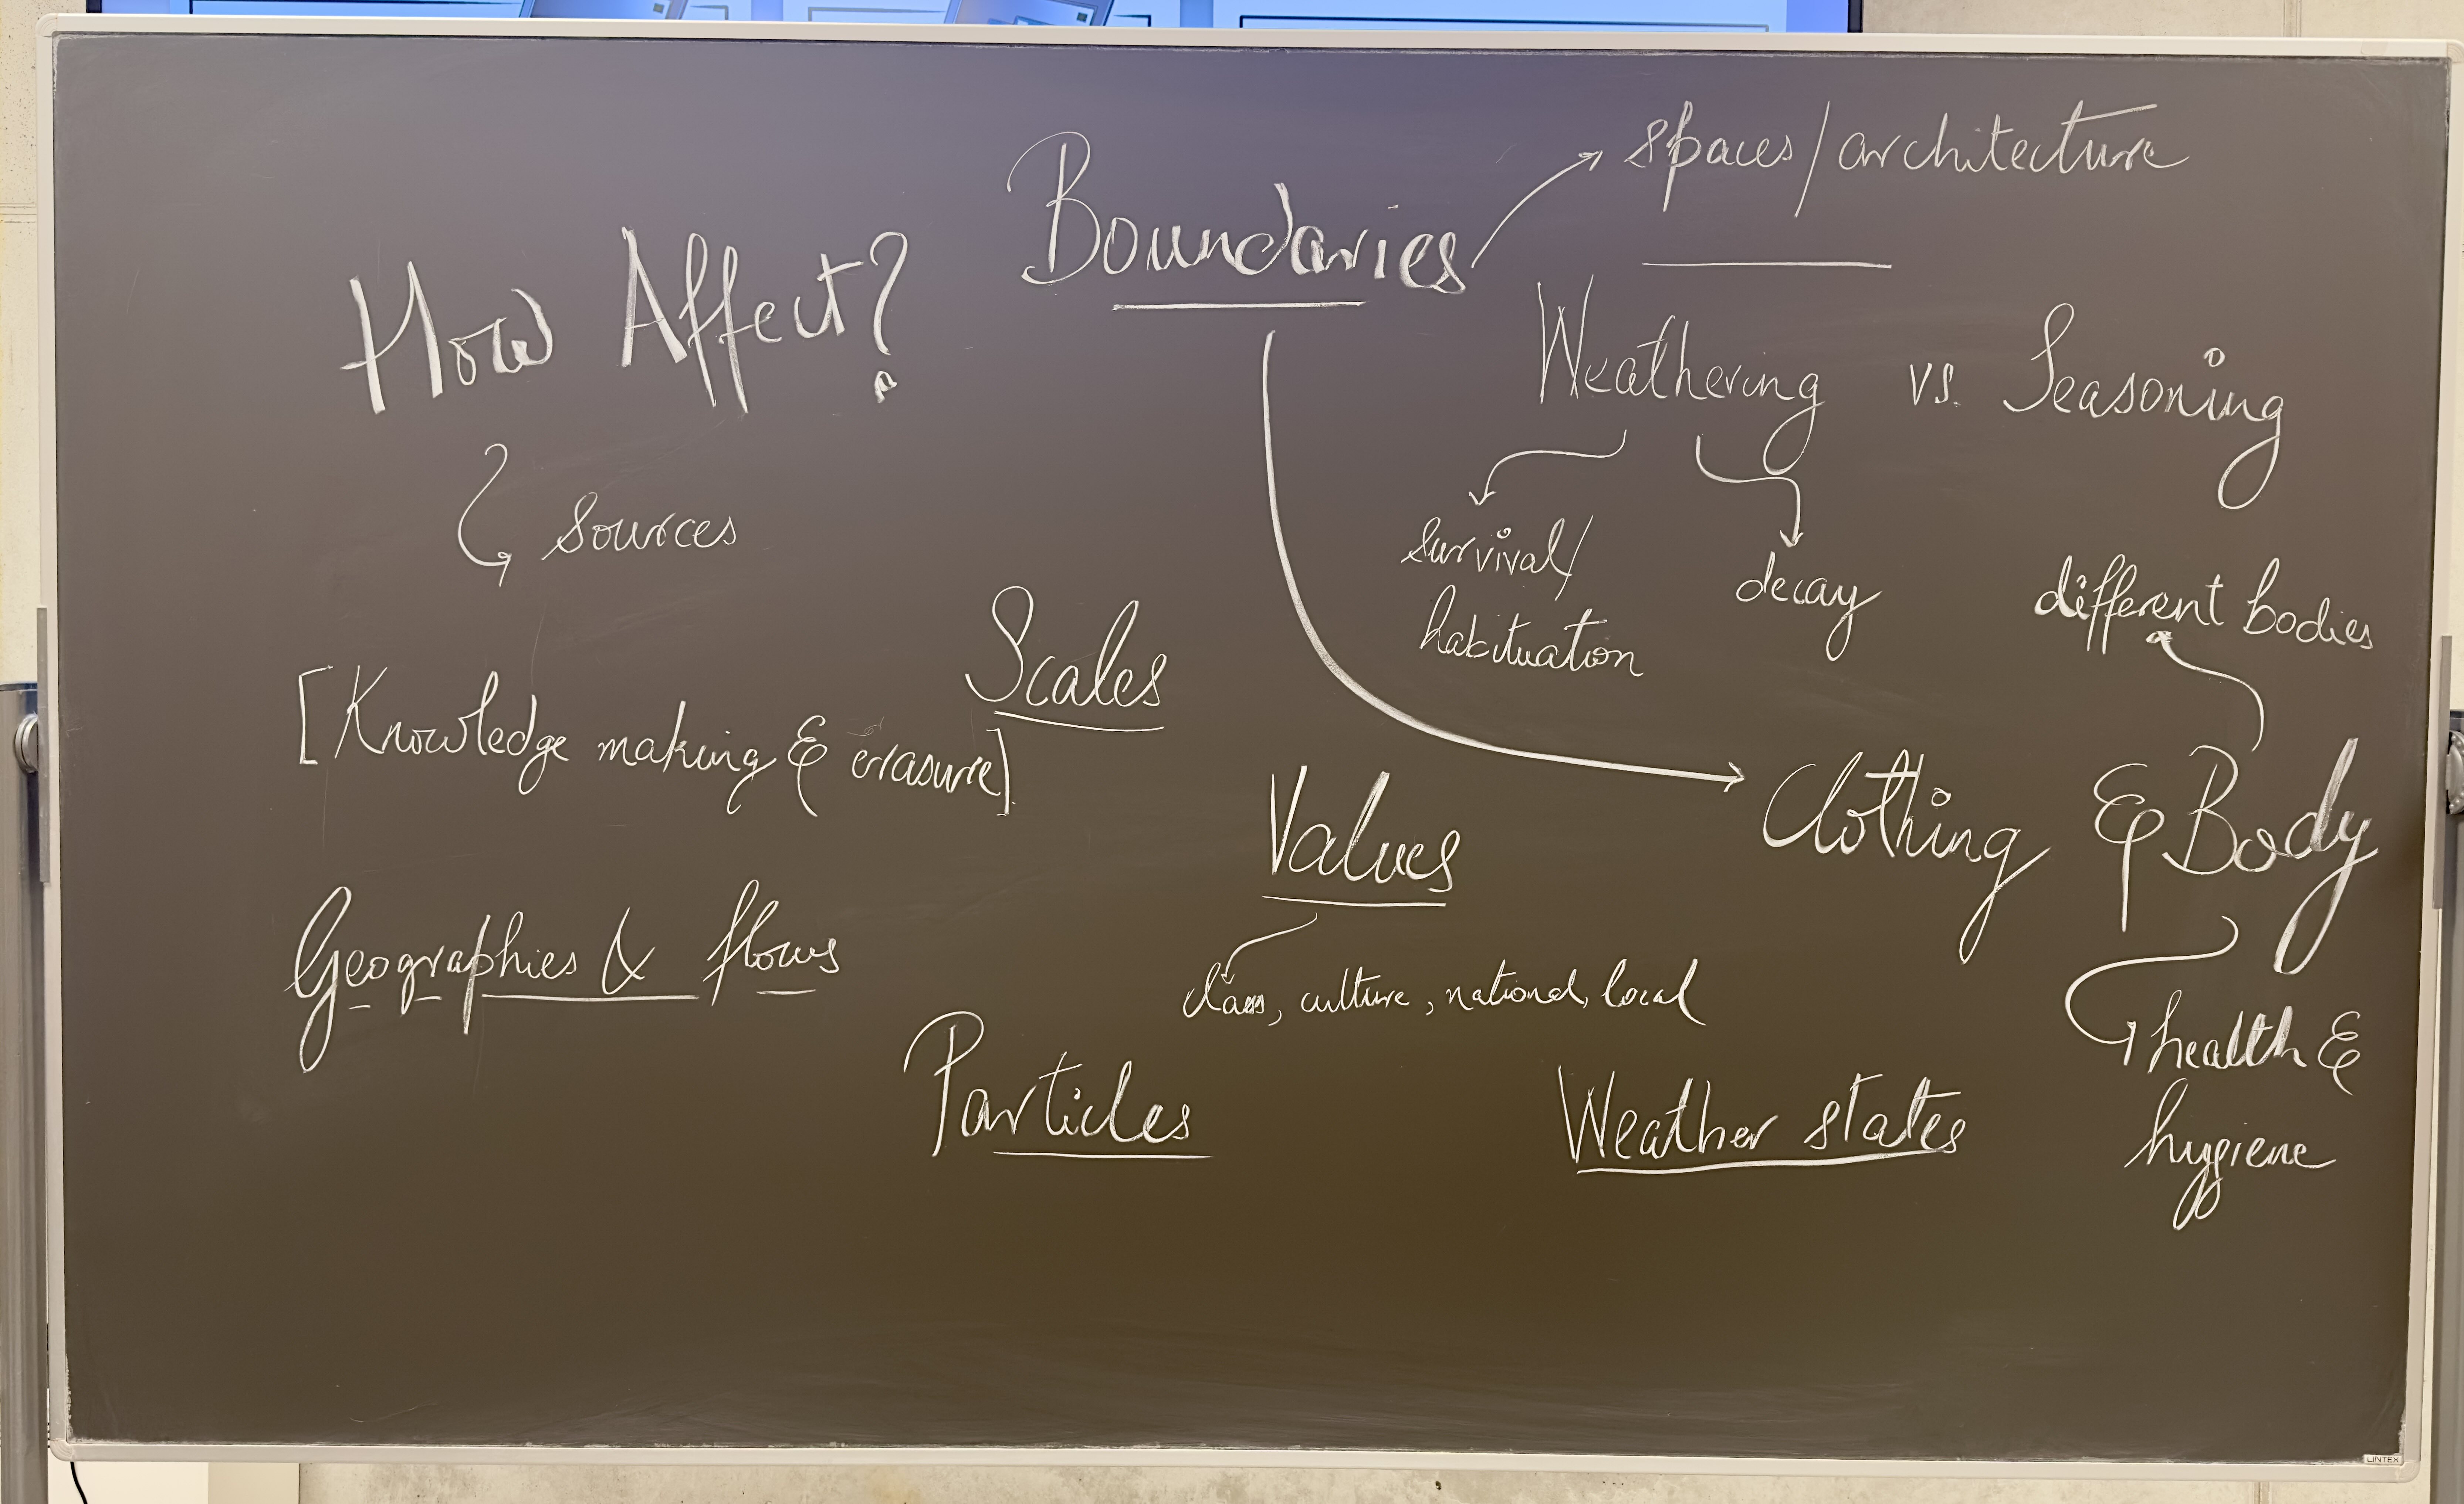 spaces/architecture
Boundaries
How Affect?
Weathering vs. Seasoning
sources
survival/
habituation
decay
different bodies
Scales
[Knowledge making & erasure]
Values
Clothing & Body
Geographies & flows
class, culture, national, local
health &
hygiene
Particles
Weather states
LINTEX